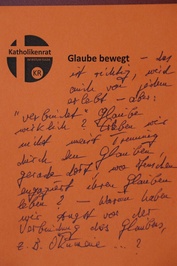 Katholikenrat
KR
Glaube bewegt – das
ist richtig, wird
auch von jedem
erlebt – aber:
"verbindet" Glaube
wirklich? Erleben wir
nicht meist Trennung
durch den Glauben
gerade dort, wo Menschen
engagiert ihren Glauben
leben? – Warum haben
wir Angst vor der
Verbindung des Glaubens,
z. B. Ökumene ...?